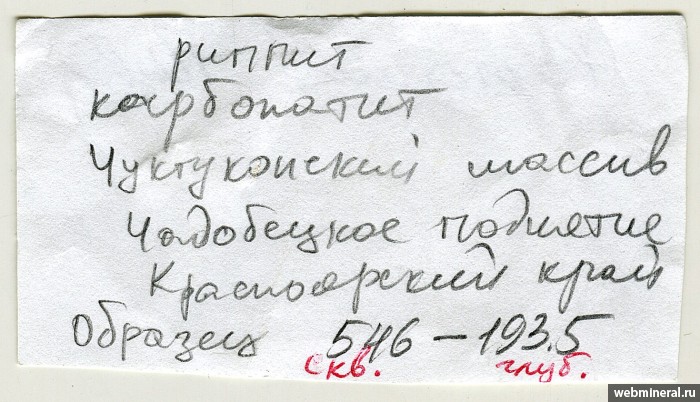 риппит
карбонатит
Чуктуконский массив
Чадобецкое поднятие
Красноярский край
Образец 546 – 193.5
скв. глуб.
webmineral.ru